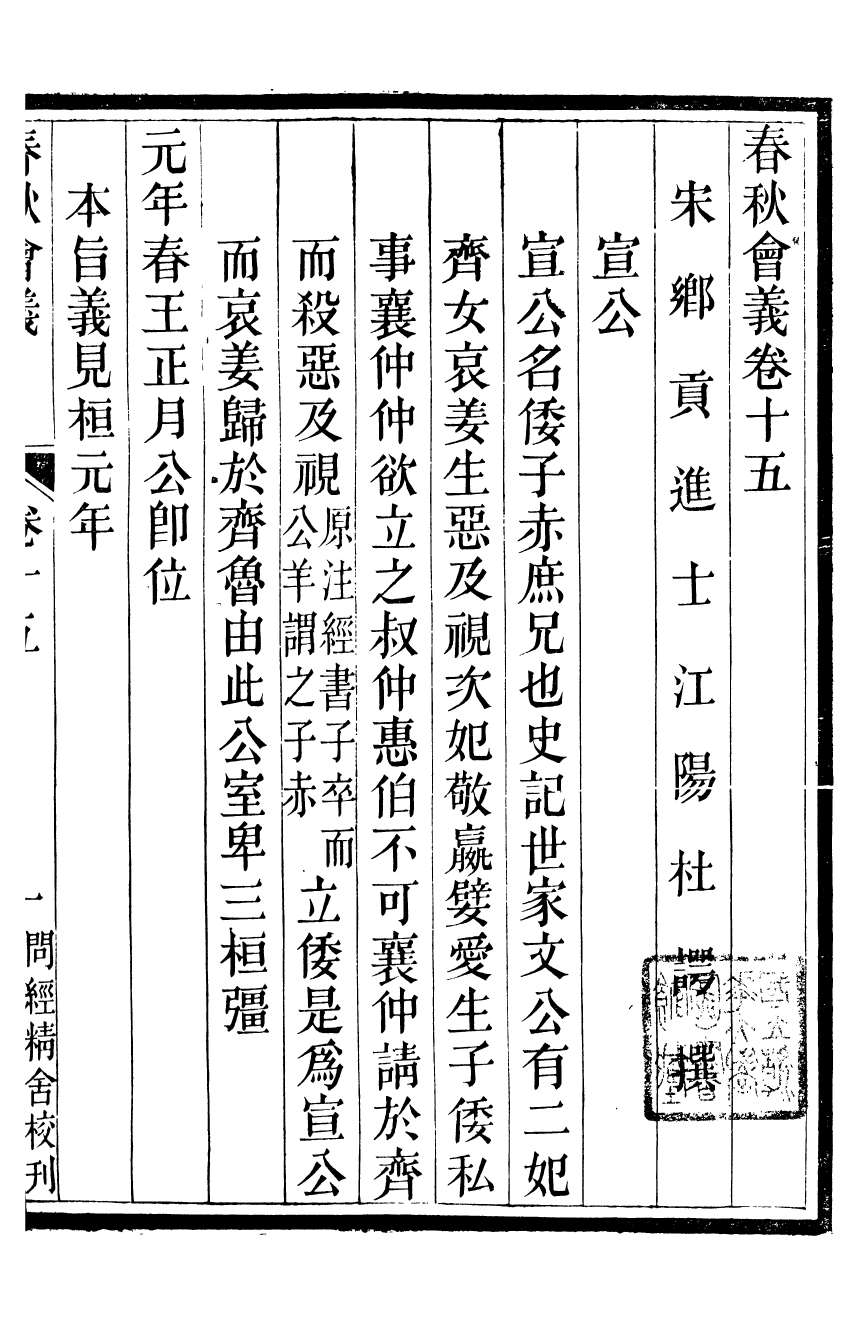 春秋會義卷十五
宋鄉貢進士江陽杜諤撰
宣公
宣公名倭子赤庶兄也史記世家文公有二妃
齊女哀姜生惡及視次妃敬嬴嬖愛生子倭私
事襄仲仲欲立之叔仲惠伯不可襄仲請於齊
而殺惡及視原注經書子卒而公羊謂之子赤立倭是爲宣公
而哀姜歸於齊魯由此公室卑三桓彊
元年春王正月公卽位
本旨義見桓元年
春秋會義 卷十五 一 問經精舍校刊